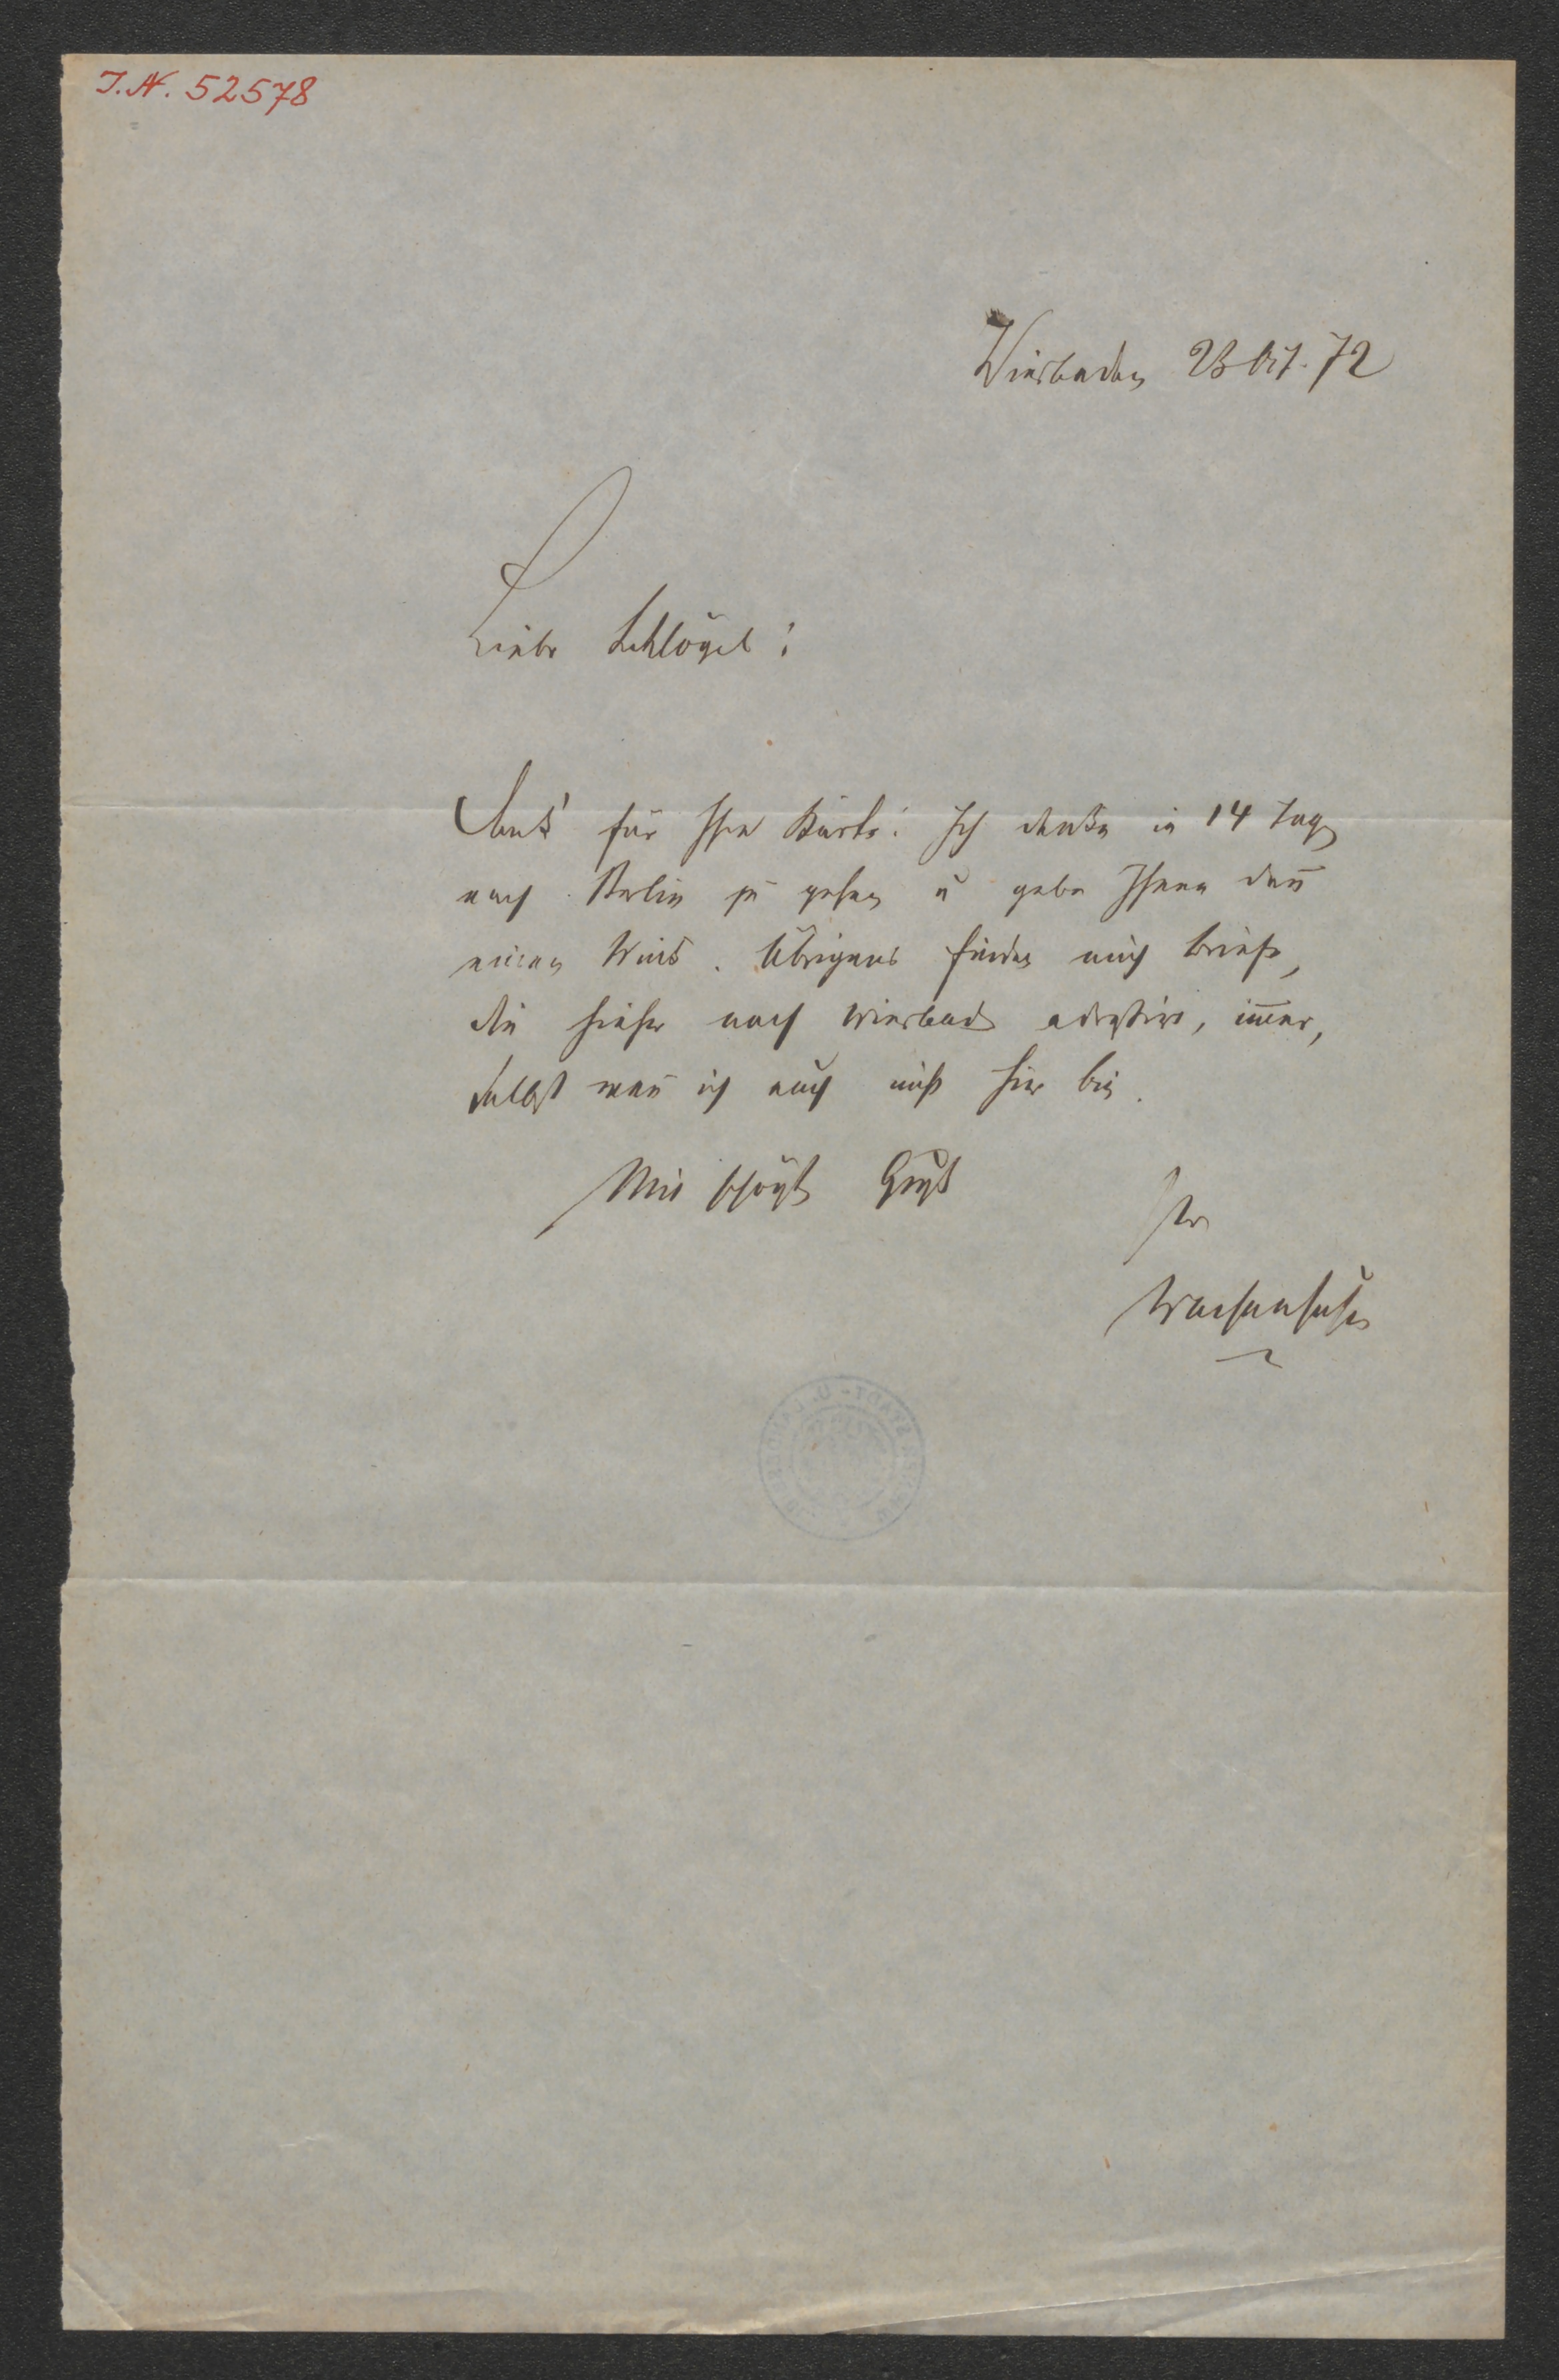 J.N. 52578
Wiesbaden 23 Oct. 72
Lieber Schlögel!
Dank für Ihre Karte! Ich denke in 14 Tagen
nach Berlin zu gehen u gebe Ihnen dann
einen Wink. Übrigens finden mich Briefe,
die hieher nach Wiesbaden adressirt, immer,
selbst wenn ich auch nicht hier bin.
Mit Gruß
Ihr
Wachenhusen